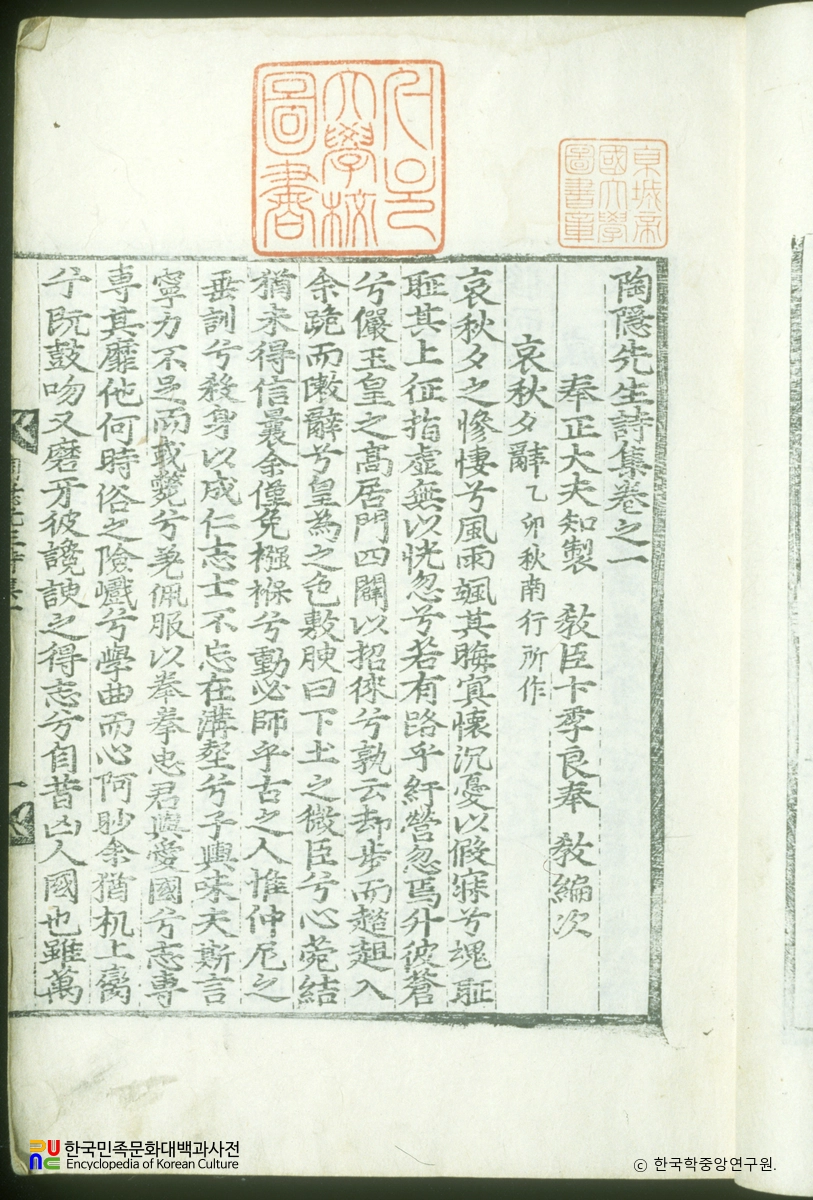 京城帝
國大學
圖書章
서울
大學校
圖書
陶隱先生詩集卷之一
奉正大夫知製 敎臣卞季良奉 敎編次
哀秋夕辭 乙卯秋南行所作
哀秋夕之慘悽兮風雨颯其晦冥懷沉憂以假寐兮魂耿
耿其上征指虛無以恍忽兮若有路乎紆營忽焉升彼蒼
兮儼玉皇之高居門四闢以招徠兮孰云却步而趑趄入
余跪而陳辭兮皇為之色敷腴曰下土之微臣兮心菀結
猶未得信曩余僅免襁褓兮動必師乎古之人惟仲尼之
垂訓兮殺身以成仁志士不忘在溝壑兮子輿味夫斯言
寧力不足而或斃兮羌佩服以拳拳忠君與愛國兮志專
專其靡他何時俗之險巇兮學曲而心阿眇余猶机上臠
兮旣鼓吻又磨牙彼讒諛之得志兮自昔凶人國也雖萬
한국민족문화대백과사전
Encyclopedia of Korean Culture
© 한국학중앙연구원.